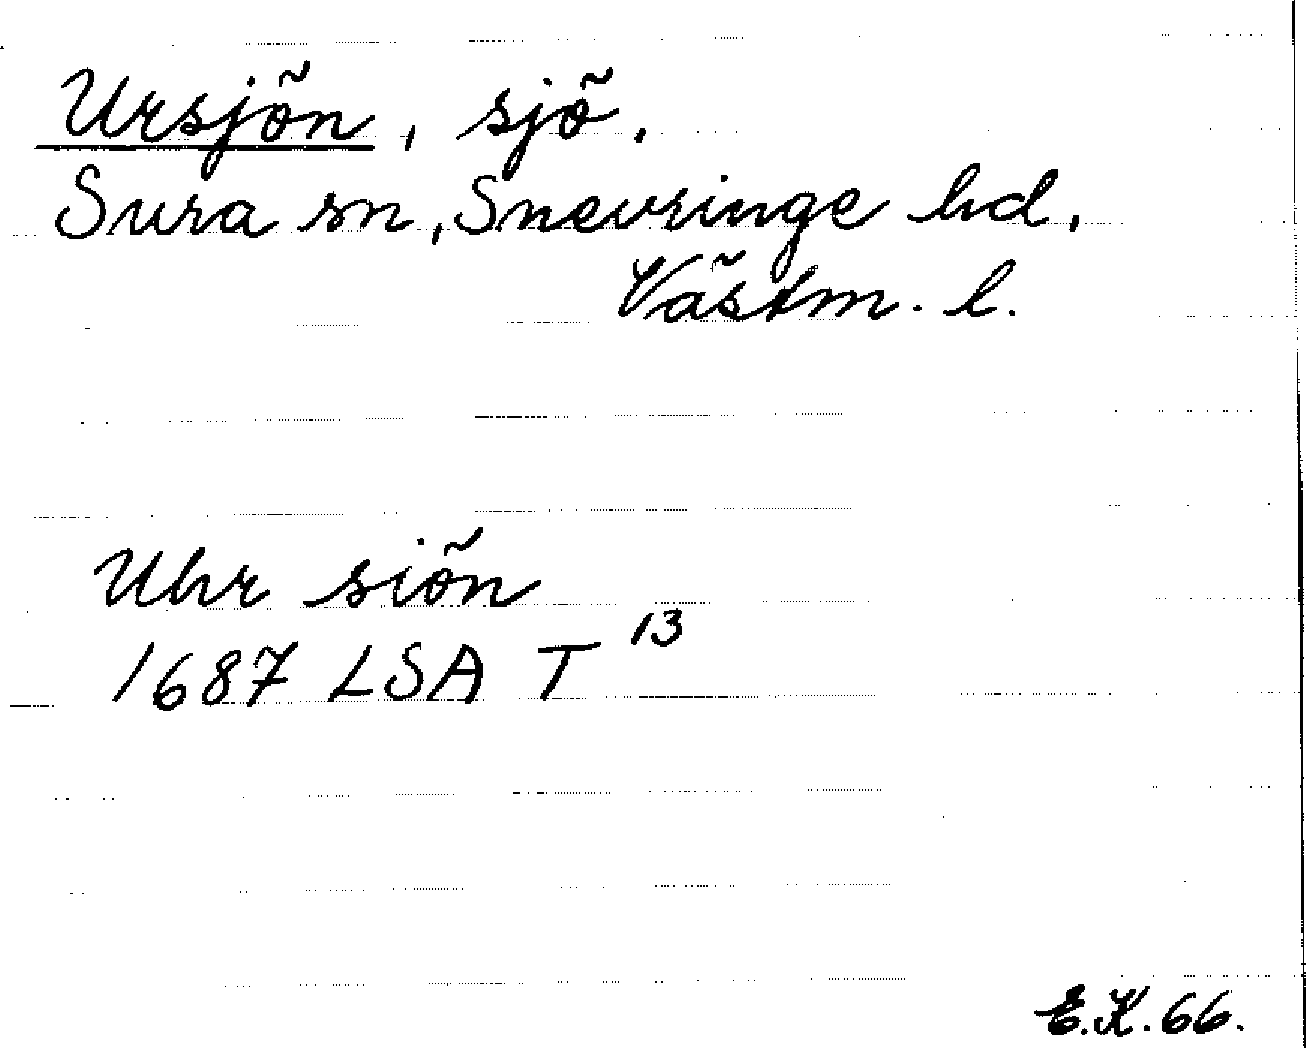 Ursjön, sjö.
Sura sn, Snevringe hd,
Västm. l.
Uhr siön
1687 LSA T 13
E.K. 66.